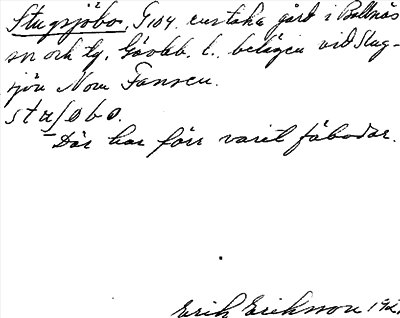 Stugsjöbo, G104. enstaka gård i Bollnäs
sn och tg. Gävleb. l., belägen vid Stug-
sjön Norr Fansen.
stu/øbo.
Där har förr varit fäbodar.
Erik Eriksson 192